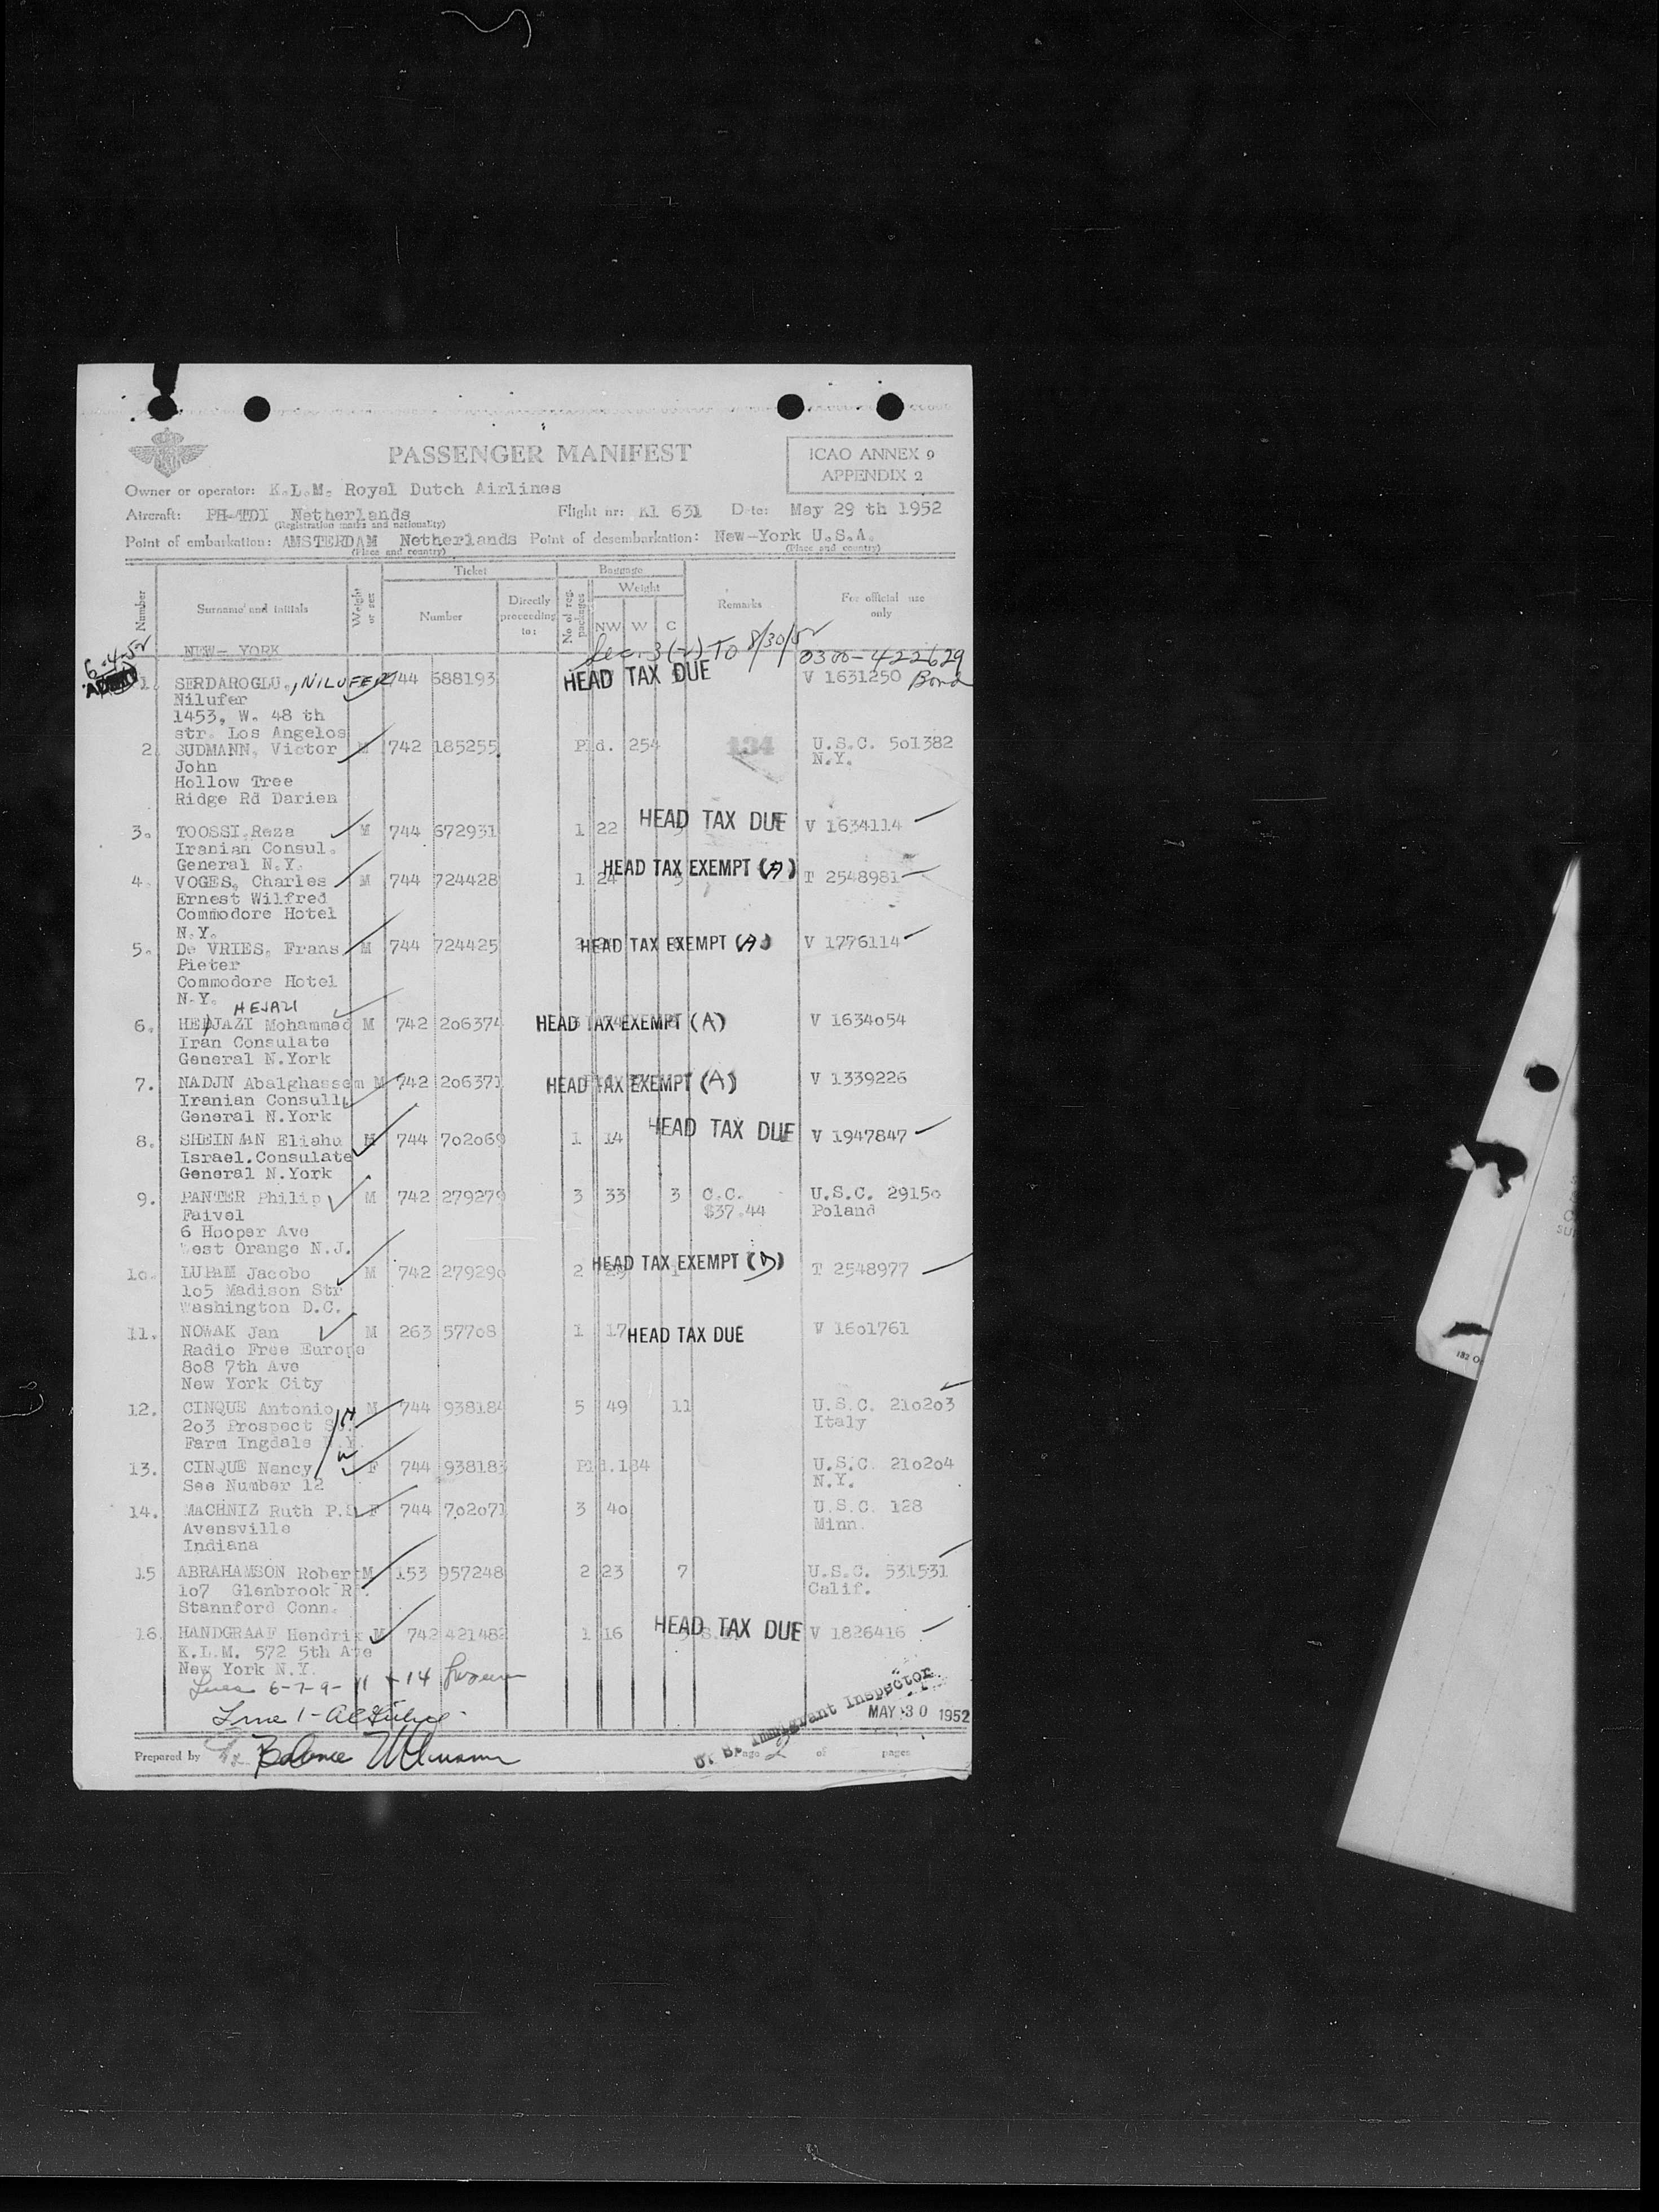 PASSENGER MANIFEST
ICAO ANNEX 9
APPENDIX 2
Owner or operator: K.L.M. Royal Dutch Airlines
Aircraft: PH-TDI Netherlands Flight nr: Kl 631 Date: May 29 th 1952
(Registration marks and nationality)
Point of embarkation: AMSTERDAM Netherlands Point of desembarkation: New-York U.S.A.
(Place and country) (Place and country)
Ticket Baggage
Number Surname and initials Weight or sex Number Directly proceeding to: No of reg. packages Weight NW W C Remarks For official use only
6-4-52 NEW-YORK Sec. 3(2) TO 8/30/52 0300-422629
1. SERDAROGLU, NILUFER 744 688193 HEAD TAX DUE V 1631250 Bond
Nilufer
1453, W. 48 th
str. Los Angelos
2. SUDMANN, Victor M 742 185255 Pld. 254 134 U.S.C. 501382
John N.Y.
Hollow Tree
Ridge Rd Darien
3. TOOSSI Reza M 744 672931 1 22 HEAD TAX DUE V 1634114
Iranian Consul.
General N.Y.
4. VOGES, Charles M 744 724428 1 24 3 HEAD TAX EXEMPT (A) T 2548981
Ernest Wilfred
Commodore Hotel
N.Y.
5. De VRIES, Frans M 744 724425 HEAD TAX EXEMPT (A) V 1776114
Pieter
Commodore Hotel
N.Y.
HEJAZI
6. HEDJAZI Mohammed M 742 206374 HEAD TAX EXEMPT (A) V 1634054
Iran Consulate
General N.York
7. NADJN Abalghassem M 742 206371 HEAD TAX EXEMPT (A) V 1339226
Iranian Consull.
General N.York
8. SHEINMAN Eliahu M 744 702069 1 14 HEAD TAX DUE V 1947847
Israel.Consulate
General N.York
9. PANTER Philip M 742 279279 3 33 3 C.C. U.S.C. 29150
Faivel $37.44 Poland
6 Hooper Ave
West Orange N.J.
10. LUPAM Jacobo M 742 279290 2 HEAD TAX EXEMPT T 2548977
105 Madison Str
Washington D.C.
11. NOWAK Jan M 263 57708 1 17 HEAD TAX DUE V 1601761
Radio Free Europe
808 7th Ave
New York City
12. CINQUE Antonio M 744 938184 5 49 11 U.S.C. 210203
203 Prospect St. Italy
Farm Ingdale N.Y.
13. CINQUE Nancy F 744 938183 Pld.184 U.S.C. 210204
See Number 12 N.Y.
14. MACHNIZ Ruth P.S F 744 702071 3 40 U.S.C. 128
Avensville Minn.
Indiana
15 ABRAHAMSON Robert M 153 957248 2 23 7 U.S.C. 531531
107 Glenbrook R. Calif.
Stannford Conn.
16. HANDGRAAF Hendrik M 742 421482 1 16 HEAD TAX DUE V 1826416
K.L.M. 572 5th Ave
New York N.Y.
Lines 6-7-9-11 + 14
Line 1-
U. S. Immigrant Inspector
MAY 30 1952
Prepared by Page 2 of pages